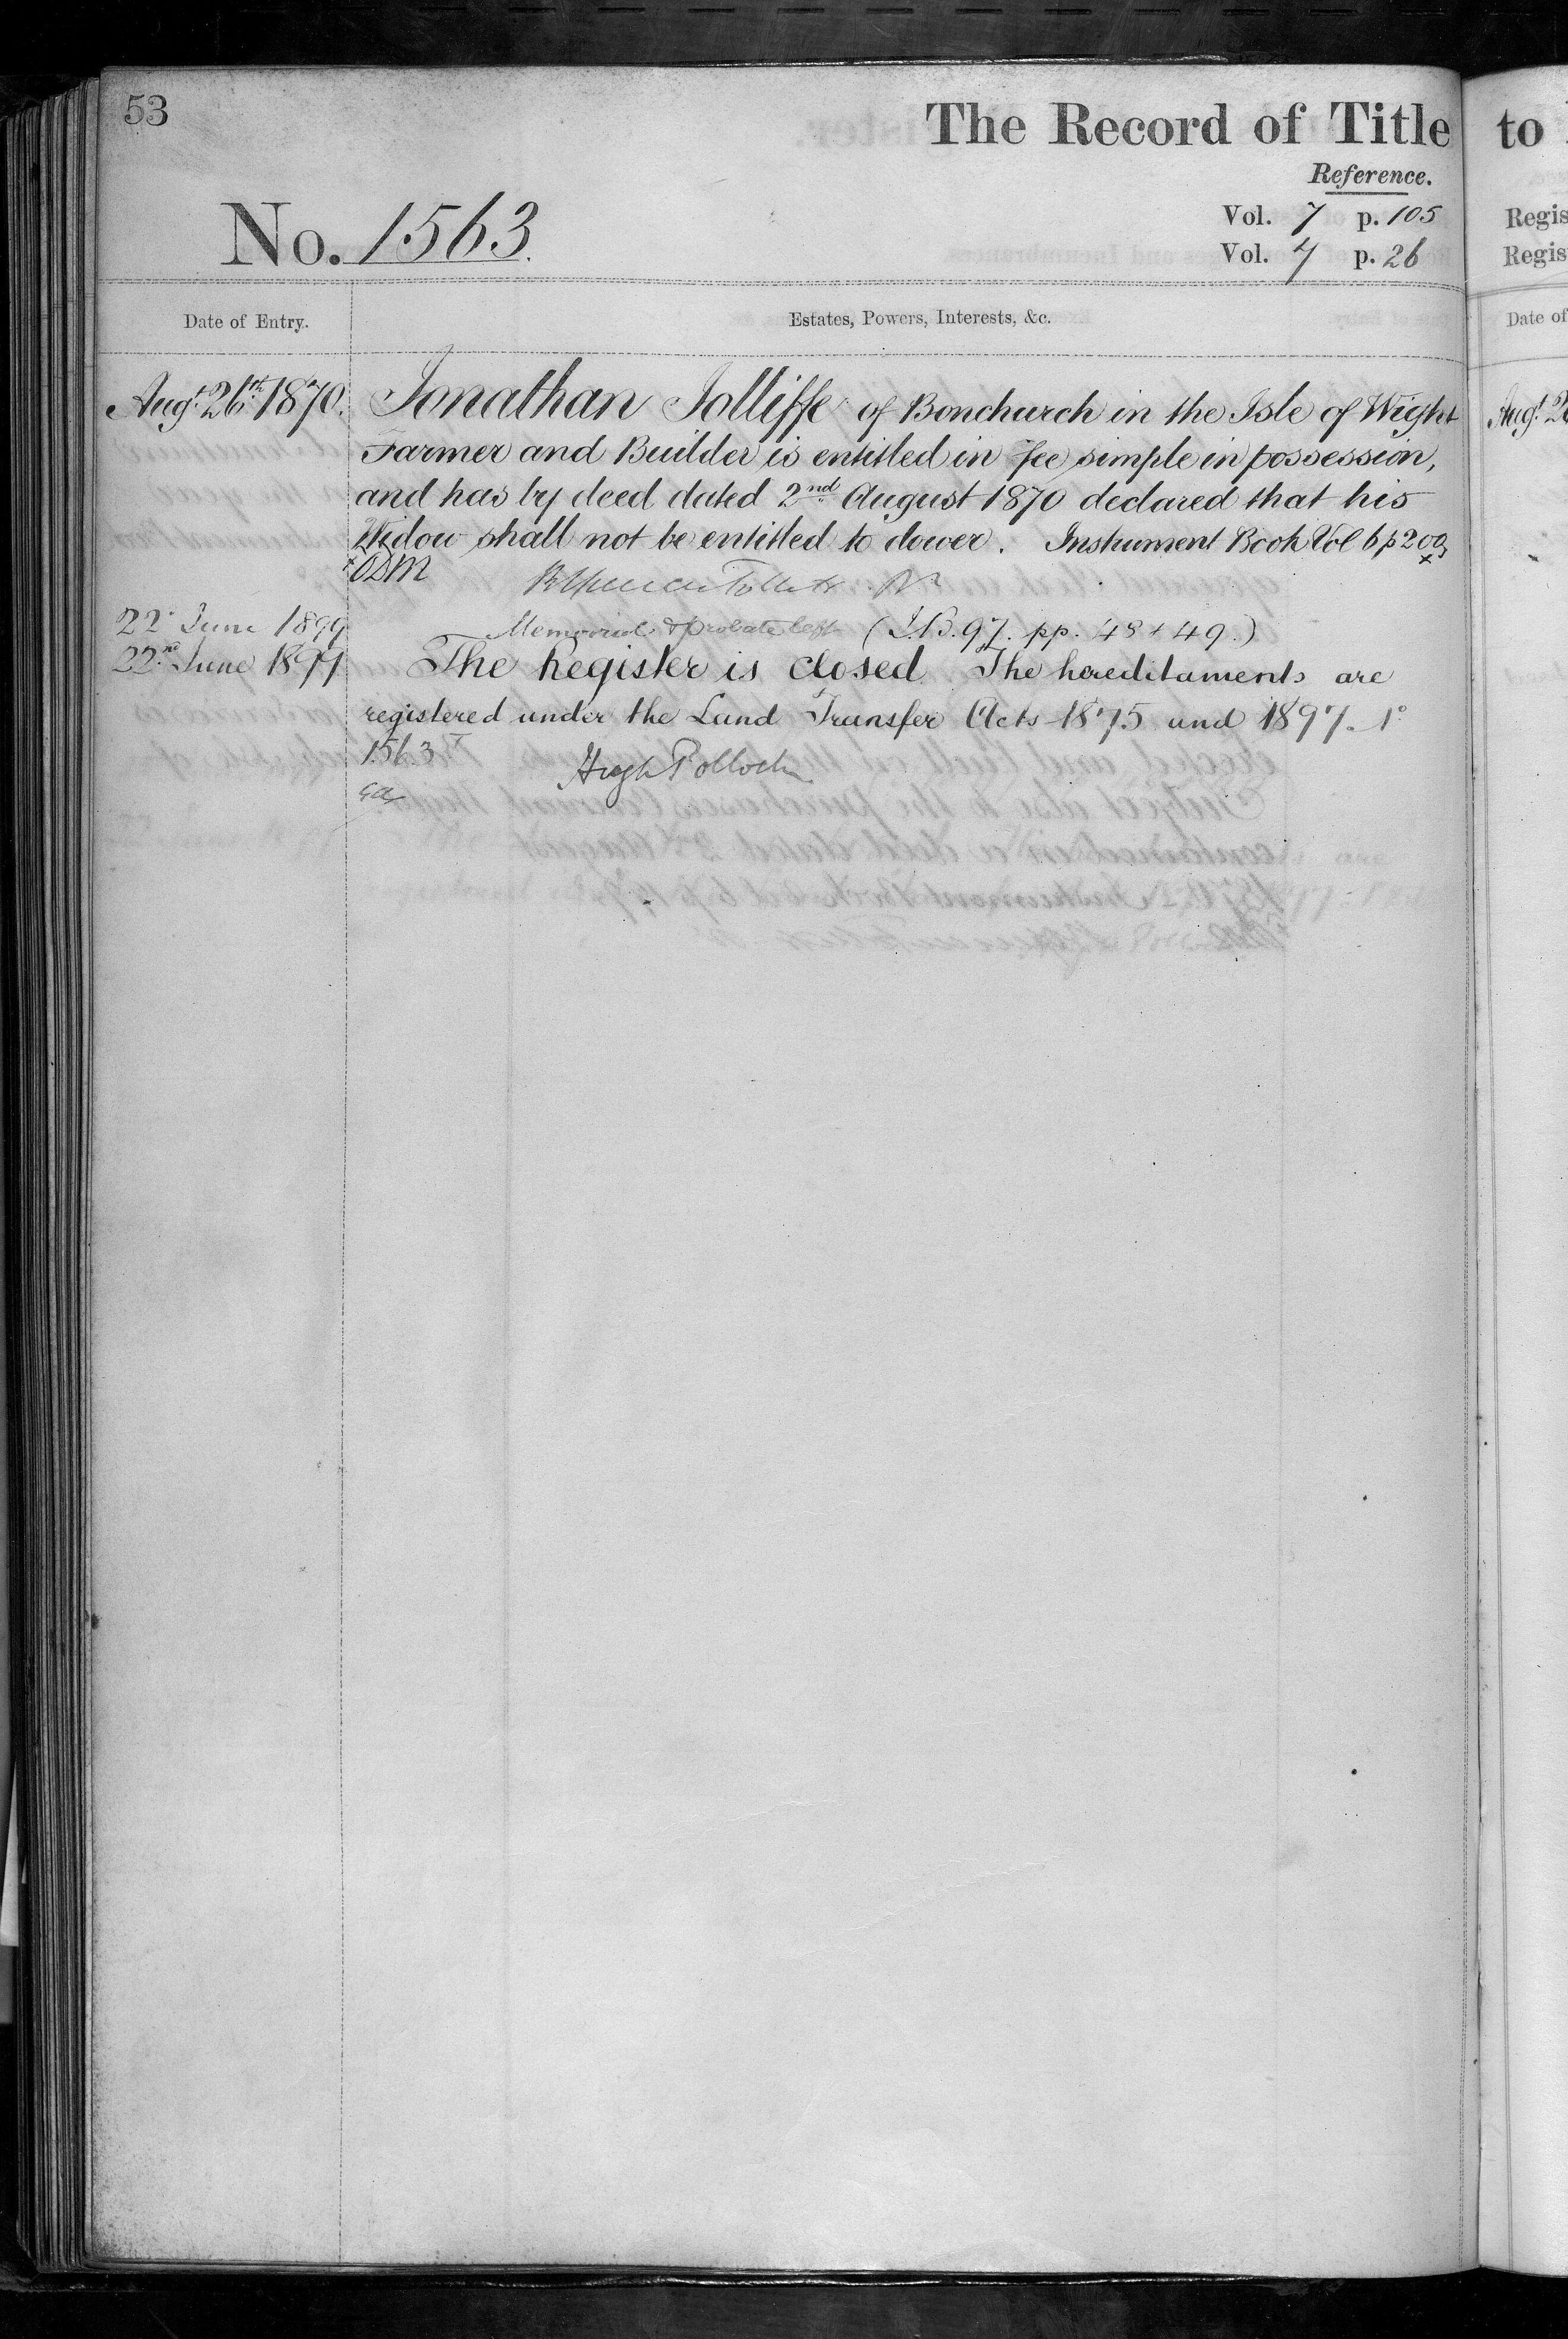 53
The Record of Title
to
Reference.
No. 1563.
Vol. 7 p. 105
Vol. 7 p. 26
Regis
Regis
Date of Entry.
Estates, Powers, Interests, &c.
Date of
Augt. 26th 1870. Jonathan Jolliffe of Bonchurch in the Isle of Wight
Augt. 26
Farmer and Builder is entitled in fee simple in possession,
and has by deed dated 2nd August 1870 declared that his
Widow shall not be entitled to dower. Instrument Book Vol 6 p 200
22 June 1899 Memorial & probate left (I.B. 97. pp. 48 + 49.)
22nd June 1899 The Register is closed The hereditaments are
registered under the Land Transfer Acts 1875 and 1897. No
1563
Hugh Pollock